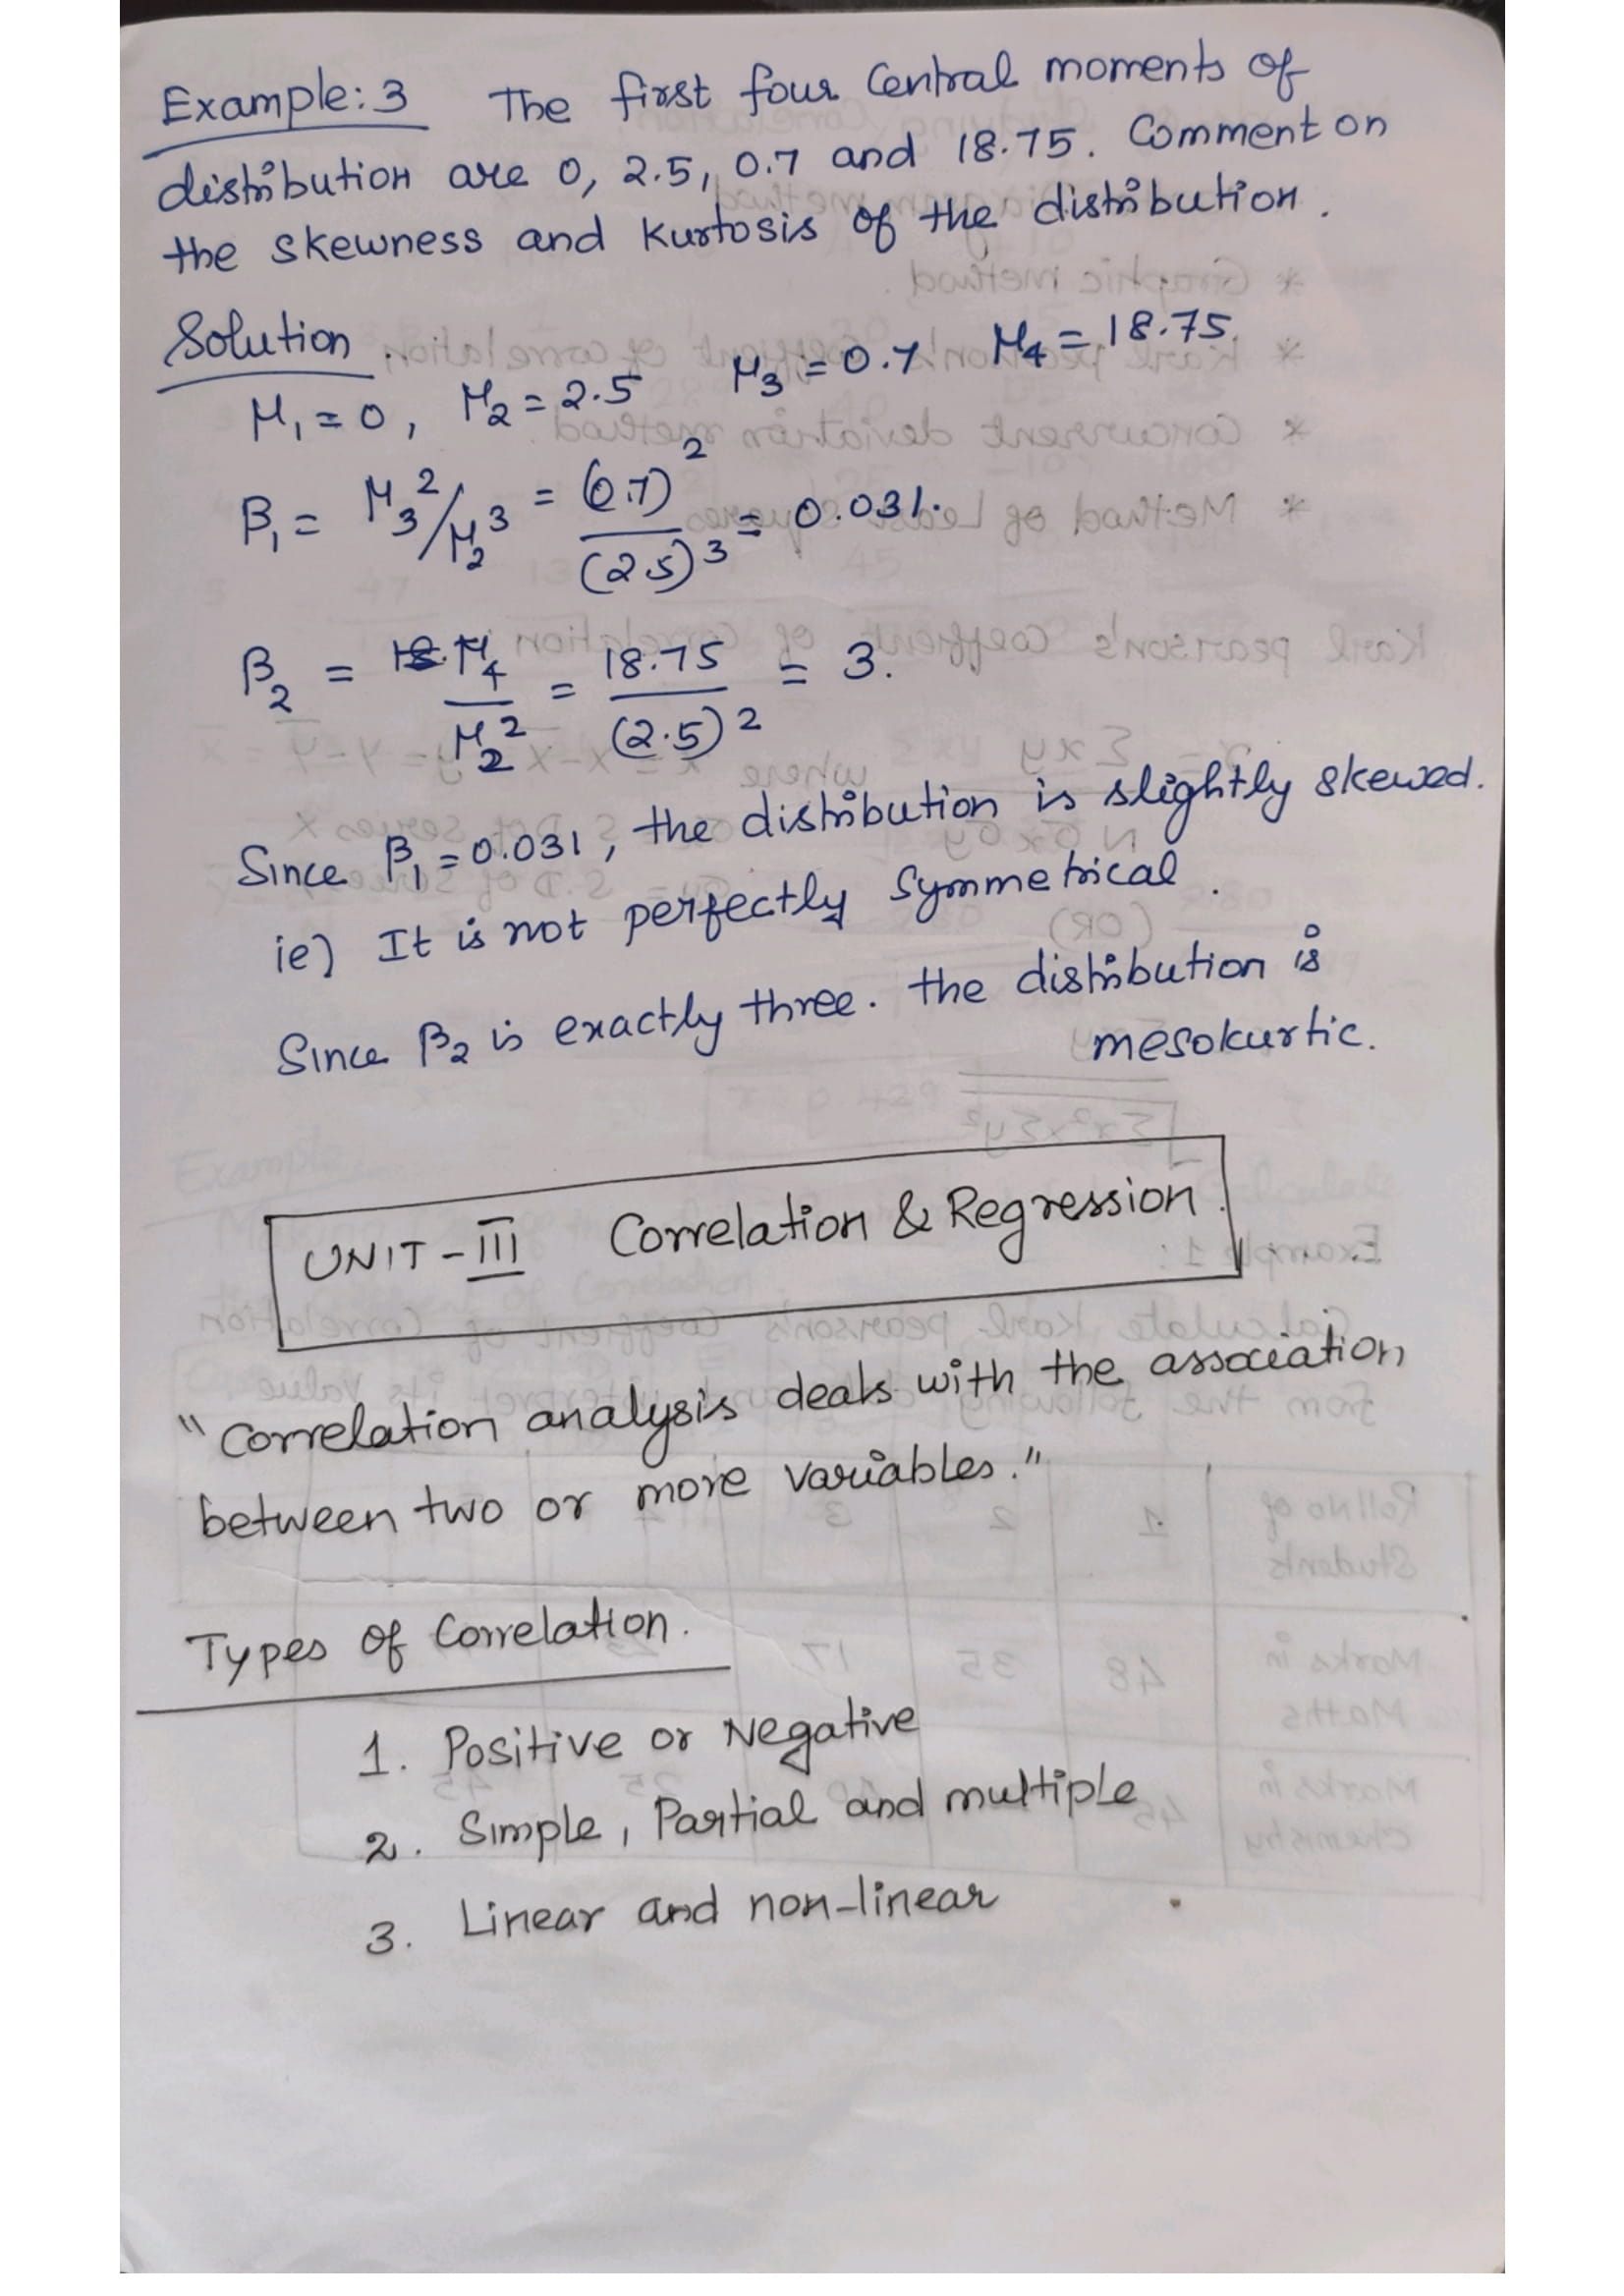 Example: 3 The first four Central moments of
distribution are 0, 2.5, 0.7 and 18.75. Comment on
the skewness and kurtosis of the distribution.
Solution.
μ₁ = 0, μ₂ = 2.5 μ₃ = 0.7 μ₄ = 18.75
β₁ = μ₃²/μ₂³ = (0.7)²/(2.5)³ = 0.031.
β₂ = μ₄/μ₂² = 18.75/(2.5)² = 3.
Since β₁ = 0.031, the distribution is slightly skewed.
ie) It is not perfectly Symmetrical.
Since β₂ is exactly three. the distribution is
mesokurtic.
UNIT - III Correlation & Regression.
"Correlation analysis deals with the association
between two or more variables."
Types of Correlation.
1. Positive or Negative
2. Simple, Partial and multiple
3. Linear and non-linear